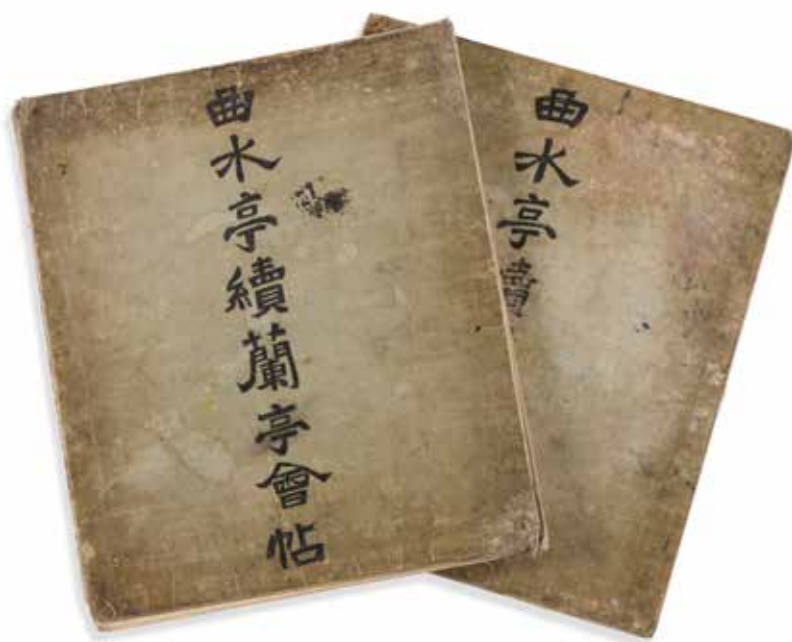 曲水亭續蘭亭會帖
曲水亭續